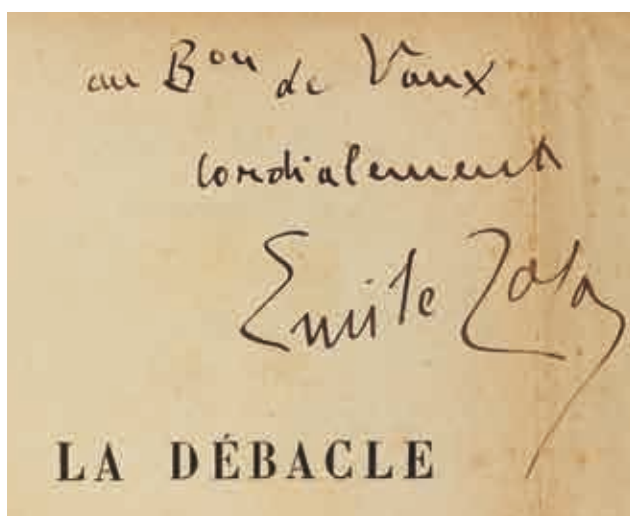 au Bon de Vaux
cordialement
Emile Zola
LA DÉBACLE